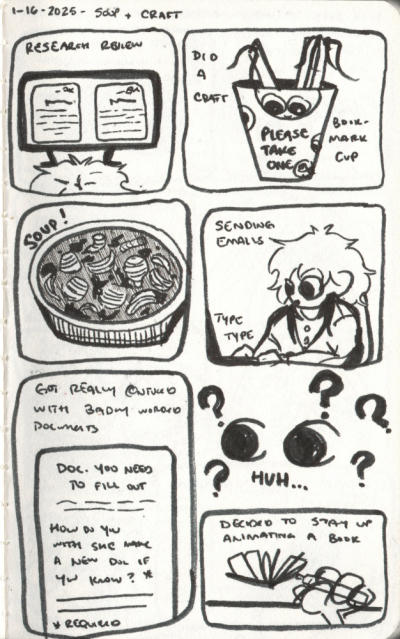 1-16-2025 - SOUP + CRAFT
RESEARCH REVIEW
DID
A
CRAFT
PLEASE
TAKE
ONE
BOOK-
MARK
CUP
SOUP!
SENDING
EMAILS
TYPE
TYPE
GOT REALLY CONFUSED
WITH BADLY WORDED
DOCUMENTS
DOC. YOU NEED
TO FILL OUT
HOW DO YOU
WITH SHE MAKE
A NEW DOC IF
YOU KNOW? *
*REQUIRED
? ? ? ? ?
HUH...
DECIDED TO STAY UP
ANIMATING A BOOK